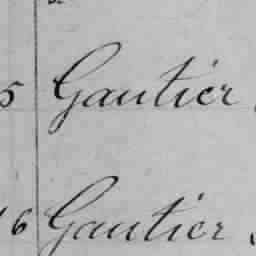 5 Gautier
6 Gautier